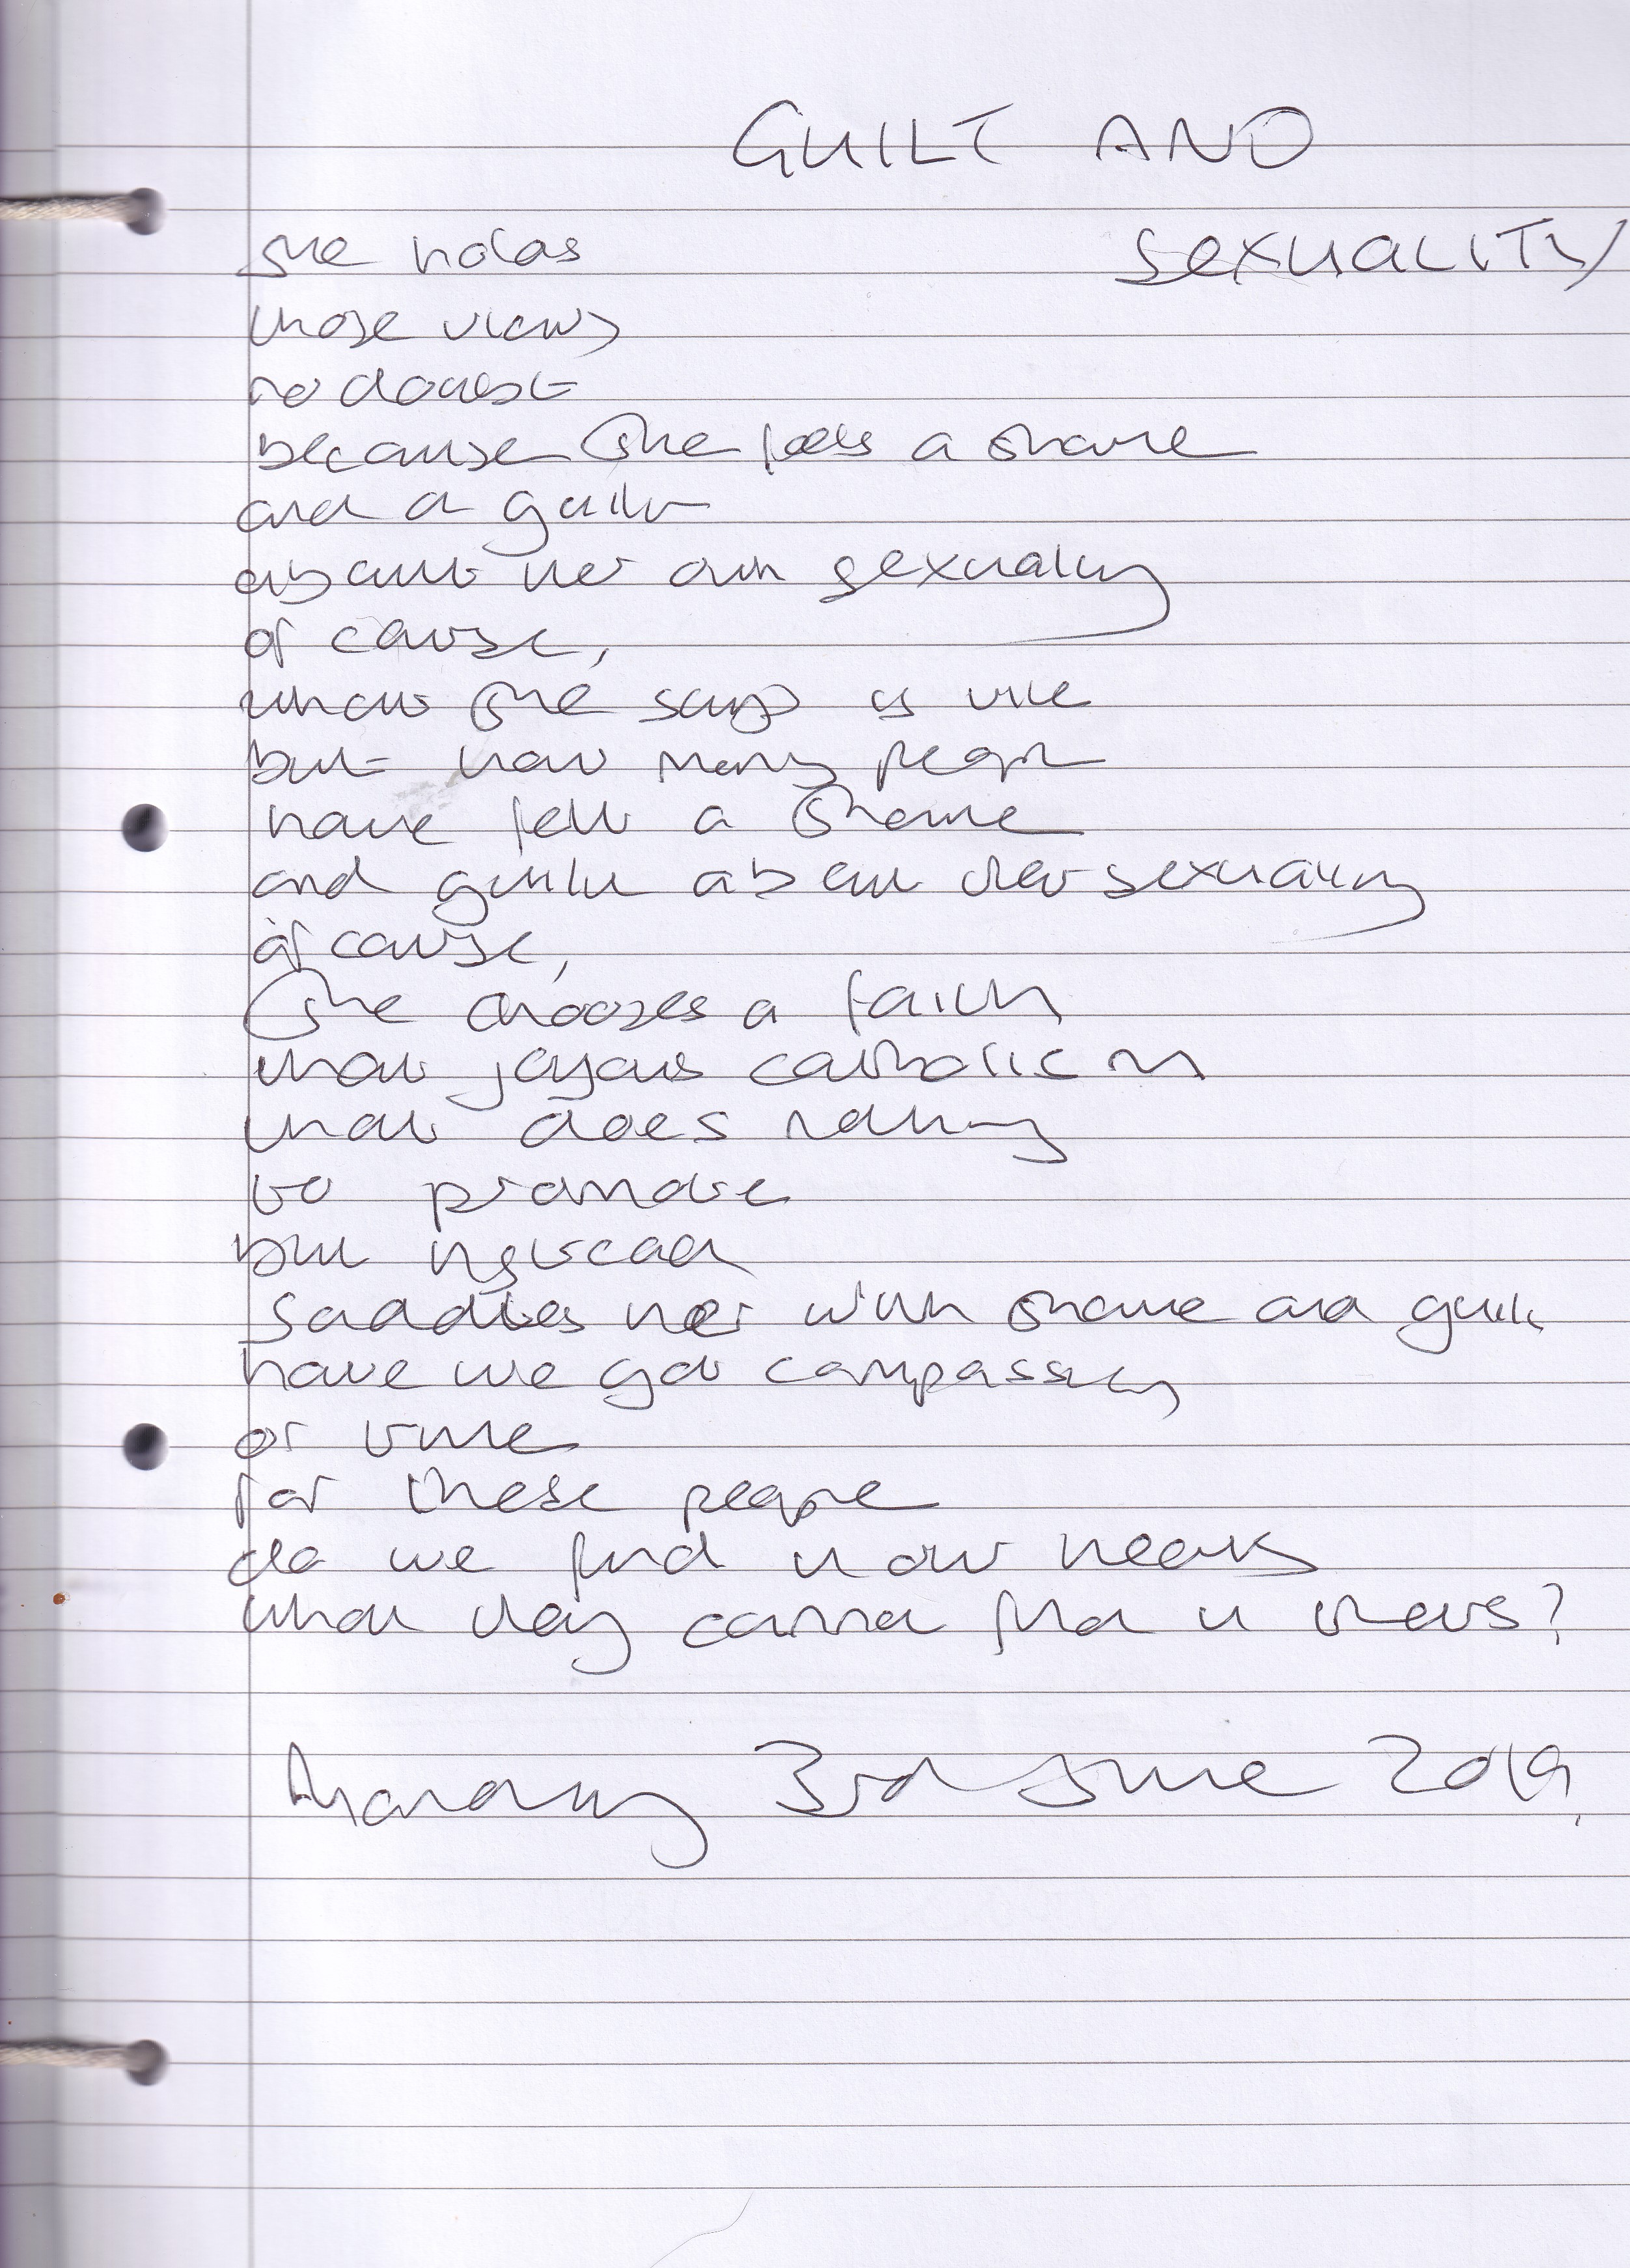 GUILT AND
SEXUALITY
she holds
those views
no doubt
because she feels a shame
and a guilt
about her own sexuality
of cause,
what she says is vile
but how many people
have felt a shame
and guilt about their sexuality
of cause,
she chooses a faith
that joyous catholicism
that does nothing
to promote
but instead
saddles her with shame and guilt
have we got compassion
or time
for these people
do we find in our hearts
what they cannot find in theirs?
Monday 3rd June 2019,